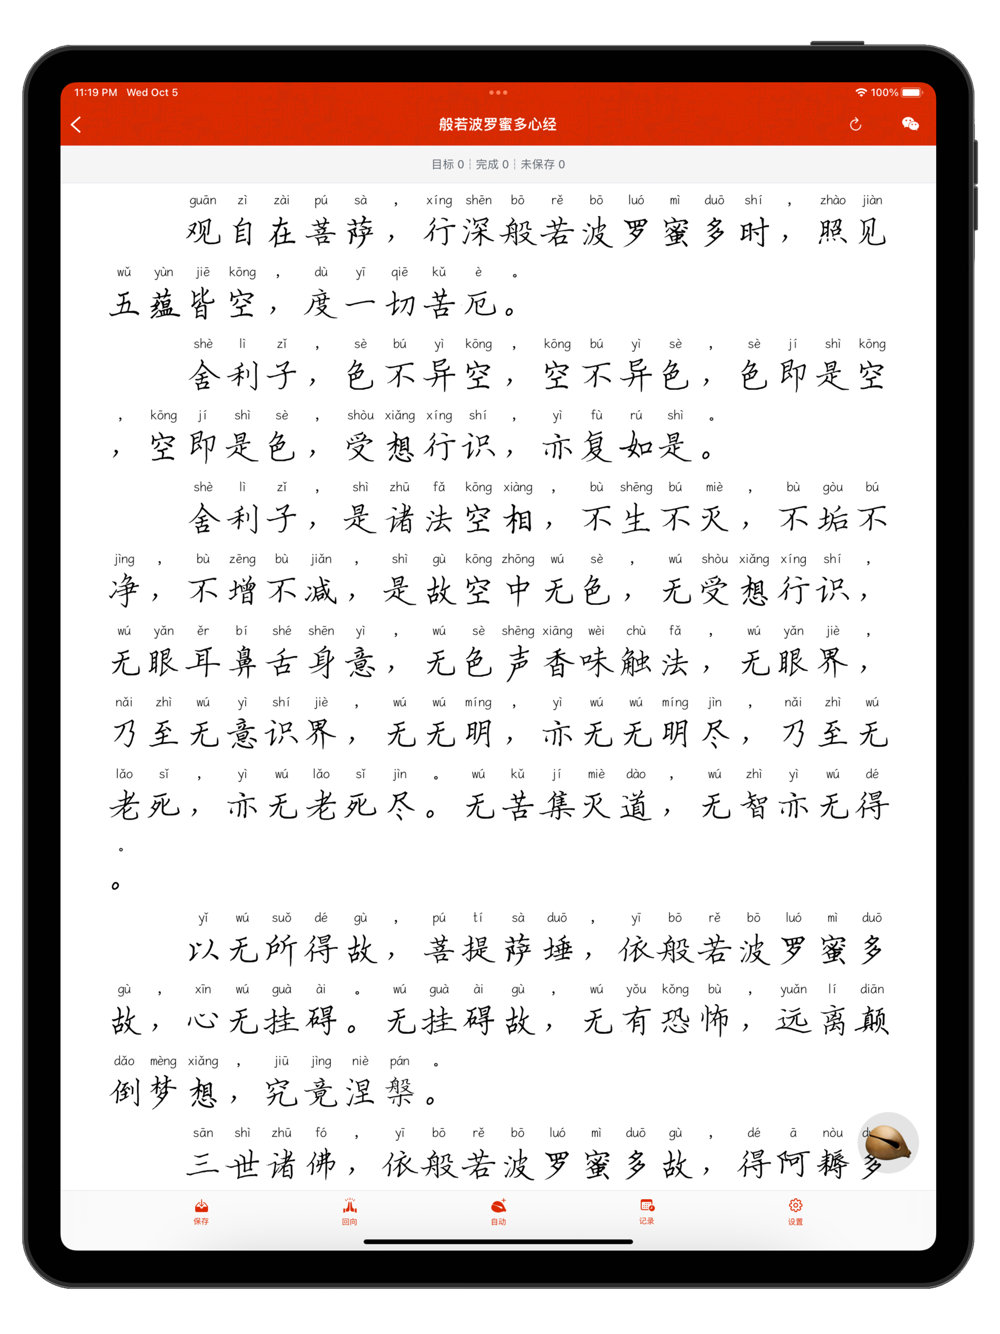 11:19 PM Wed Oct 5 100%
般若波罗蜜多心经
目标 0 ┆ 完成 0 ┆ 未保存 0
guān zì zài pú sà ， xíng shēn bō rě bō luó mì duō shí ， zhào jiàn
观自在菩萨，行深般若波罗蜜多时，照见
wǔ yùn jiē kōng ， dù yī qiē kǔ è 。
五蕴皆空，度一切苦厄。
shè lì zǐ ， sè bú yì kōng ， kōng bú yì sè ， sè jí shì kōng
舍利子，色不异空，空不异色，色即是空
， kōng jí shì sè ， shòu xiǎng xíng shí ， yì fù rú shì 。
，空即是色，受想行识，亦复如是。
shè lì zǐ ， shì zhū fǎ kōng xiàng ， bù shēng bú miè ， bù gòu bú
舍利子，是诸法空相，不生不灭，不垢不
jìng ， bù zēng bù jiǎn ， shì gù kōng zhōng wú sè ， wú shòu xiǎng xíng shí ，
净，不增不减，是故空中无色，无受想行识，
wú yǎn ěr bí shé shēn yì ， wú sè shēng xiāng wèi chù fǎ ， wú yǎn jiè ，
无眼耳鼻舌身意，无色声香味触法，无眼界，
nǎi zhì wú yì shí jiè ， wú wú míng ， yì wú wú míng jìn ， nǎi zhì wú
乃至无意识界，无无明，亦无无明尽，乃至无
lǎo sǐ ， yì wú lǎo sǐ jìn 。 wú kǔ jí miè dào ， wú zhì yì wú dé
老死，亦无老死尽。无苦集灭道，无智亦无得
。
。
yǐ wú suǒ dé gù ， pú tí sà duǒ ， yī bō rě bō luó mì duō
以无所得故，菩提萨埵，依般若波罗蜜多
gù ， xīn wú guà ài 。 wú guà ài gù ， wú yǒu kǒng bù ， yuǎn lí diān
故，心无挂碍。无挂碍故，无有恐怖，远离颠
dǎo mèng xiǎng ， jiū jìng niè pán 。
倒梦想，究竟涅槃。
sān shì zhū fó ， yī bō rě bō luó mì duō gù ， dé ā nòu
三世诸佛，依般若波罗蜜多故，得阿耨多
保存 回向 自动 记录 设置